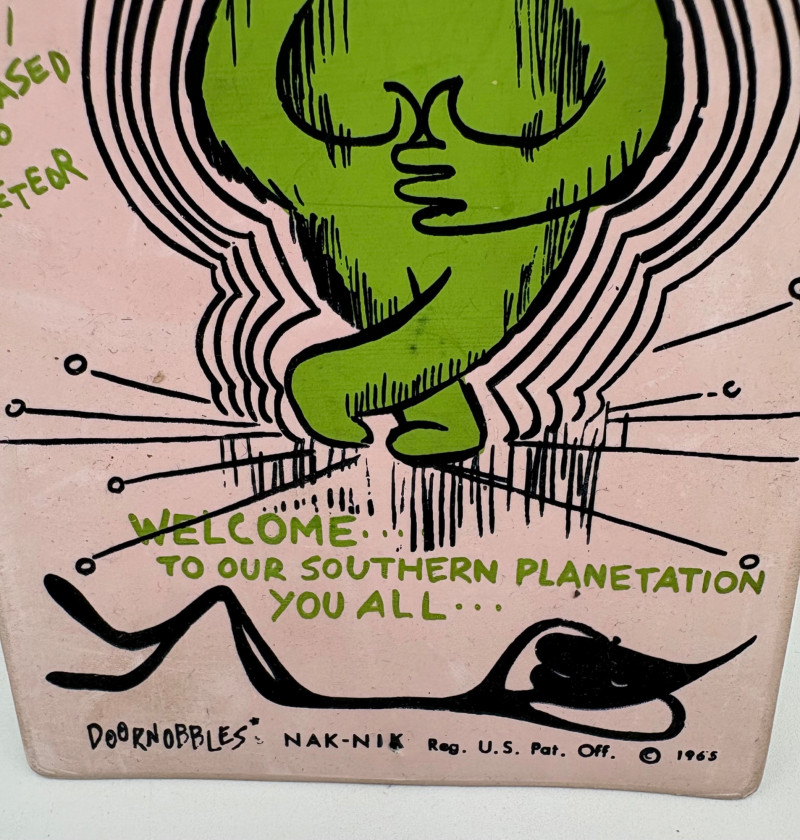 I
ASED
O
ETEOR
WELCOME...
TO OUR SOUTHERN PLANETATION
YOU ALL...
DOORNOBBLES* NAK-NIK Reg. U.S. Pat. Off. © 1965